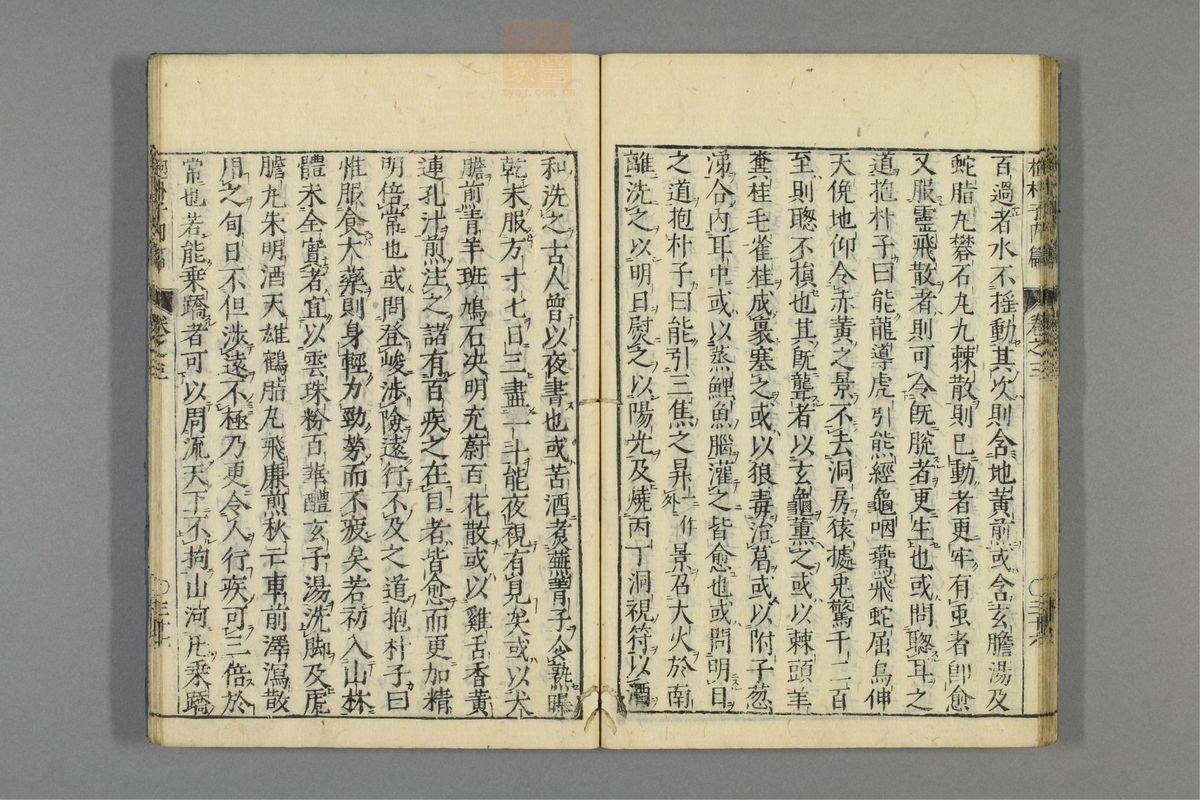 百過者水不搖動其次則含地黃煎或含玄膽湯及
蛇脂丸礬石丸九棘散則已動者更牢有虫者即愈
又服靈飛散者則可令既脫者更生也或問聰耳之
道抱朴子曰能龍導虎引熊經龜咽鷰飛蛇屈鳥伸
天俛地仰令赤黃之景不去洞房猿據兎驚千二百
至則聰不損也其既聾者以玄龜薰之或以棘頭羊
糞桂毛雀桂成裹塞之或以狼毒治葛或以附子葱
涕合內耳中或以蒸鯉魚腦灌之皆愈也或問明目
之道抱朴子曰能引三焦之昇景召大火於南
離洗之以明目熨之以陽光及燒丙丁洞視符以酒
和洗之古人曾以夜書也或苦酒煮蕪菁子令熟曝
乾末服方寸七日三盡一斗能夜視有見矣或以犬
膽煎青羊班鳩石決明充蔚百花散或以雞舌香黃
連乳汁煎注之諸有百疾之在目者皆愈而更加精
明倍常也或問登峻涉險遠行不及之道抱朴子曰
惟服食大藥則身輕力勁勞而不疲矣若初入山林
體未全實者宜以雲珠粉百華醴玄子湯洗脚及虎
膽丸朱明酒天雄鶴脂丸飛廉煎秋亡車前澤瀉散
用之旬日不但涉遠不極乃更令人行疾可三倍於
常也若能乘蹻者可以周流天下不拘山河凡乘蹻
抱朴子內篇 卷之三